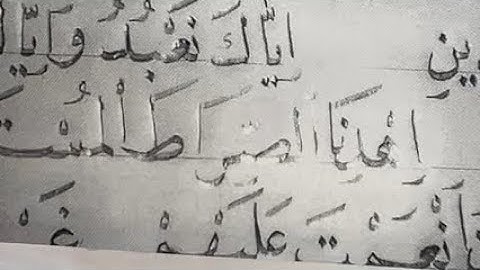 ين اِيَّاكَ نَعْبُدُ وَاِيَّاكَ
اِهْدِنَا الصِّرَاطَ الْمُسْتَ
اَنْعَمْتَ عَلَيْهِمْ غَيْ